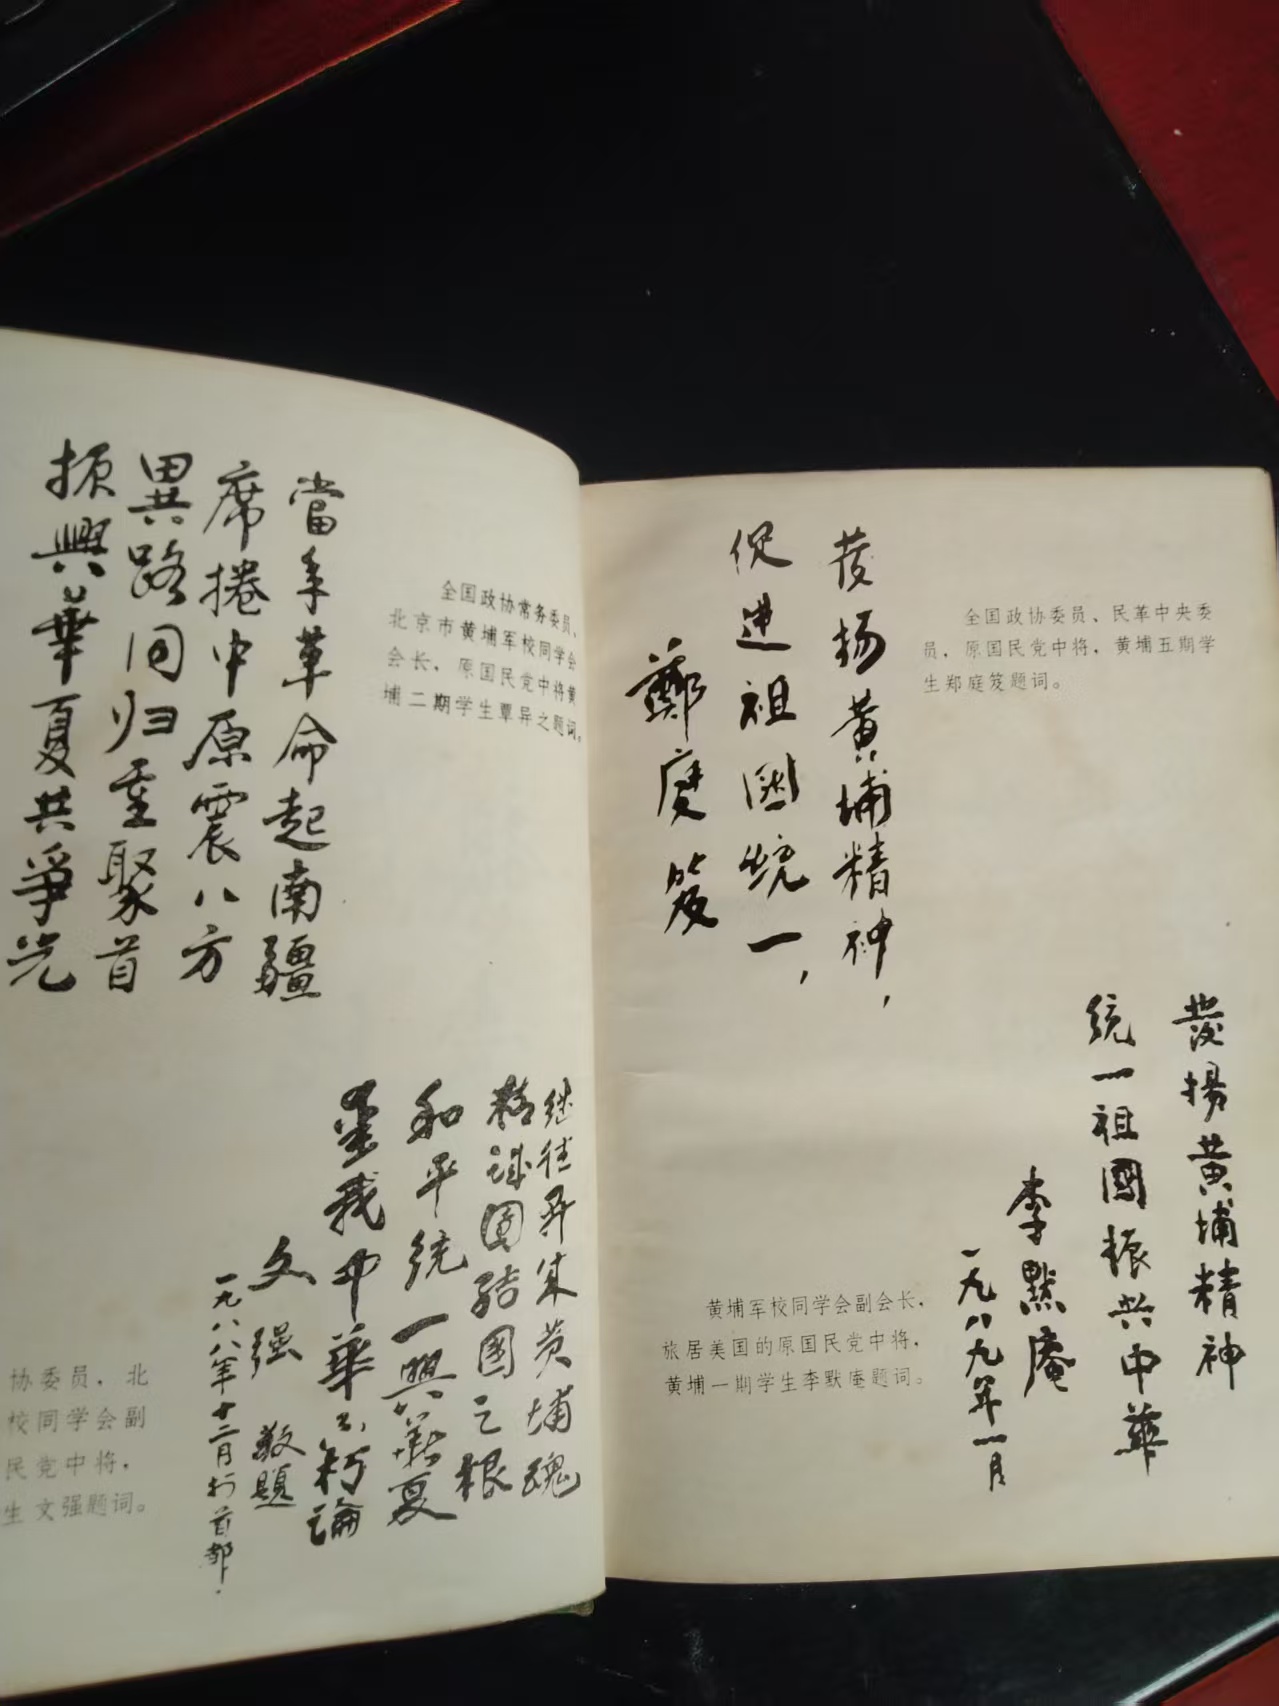 當年革命起南疆
席捲中原震八方
異路同归重聚首
振興華夏共爭光
全国政协常务委员、
北京市黄埔军校同学会
会长，原国民党中将黄
埔二期学生覃异之题词。
继往开来黄埔魂
精诚团结国之根
和平统一興華夏
是我中華不朽論
文强 敬題
一九八八年十二月于首都.
协委员，北
校同学会副
民党中将，
生文强题词。
全国政协委员、民革中央委
员，原国民党中将，黄埔五期学
生郑庭笈题词。
发扬黄埔精神，
促进祖國统一，
鄭庭笈
發揚黄埔精神
统一祖國振兴中華
李默庵
一九八九年一月
黄埔军校同学会副会长，
旅居美国的原国民党中将，
黄埔一期学生李默庵题词。